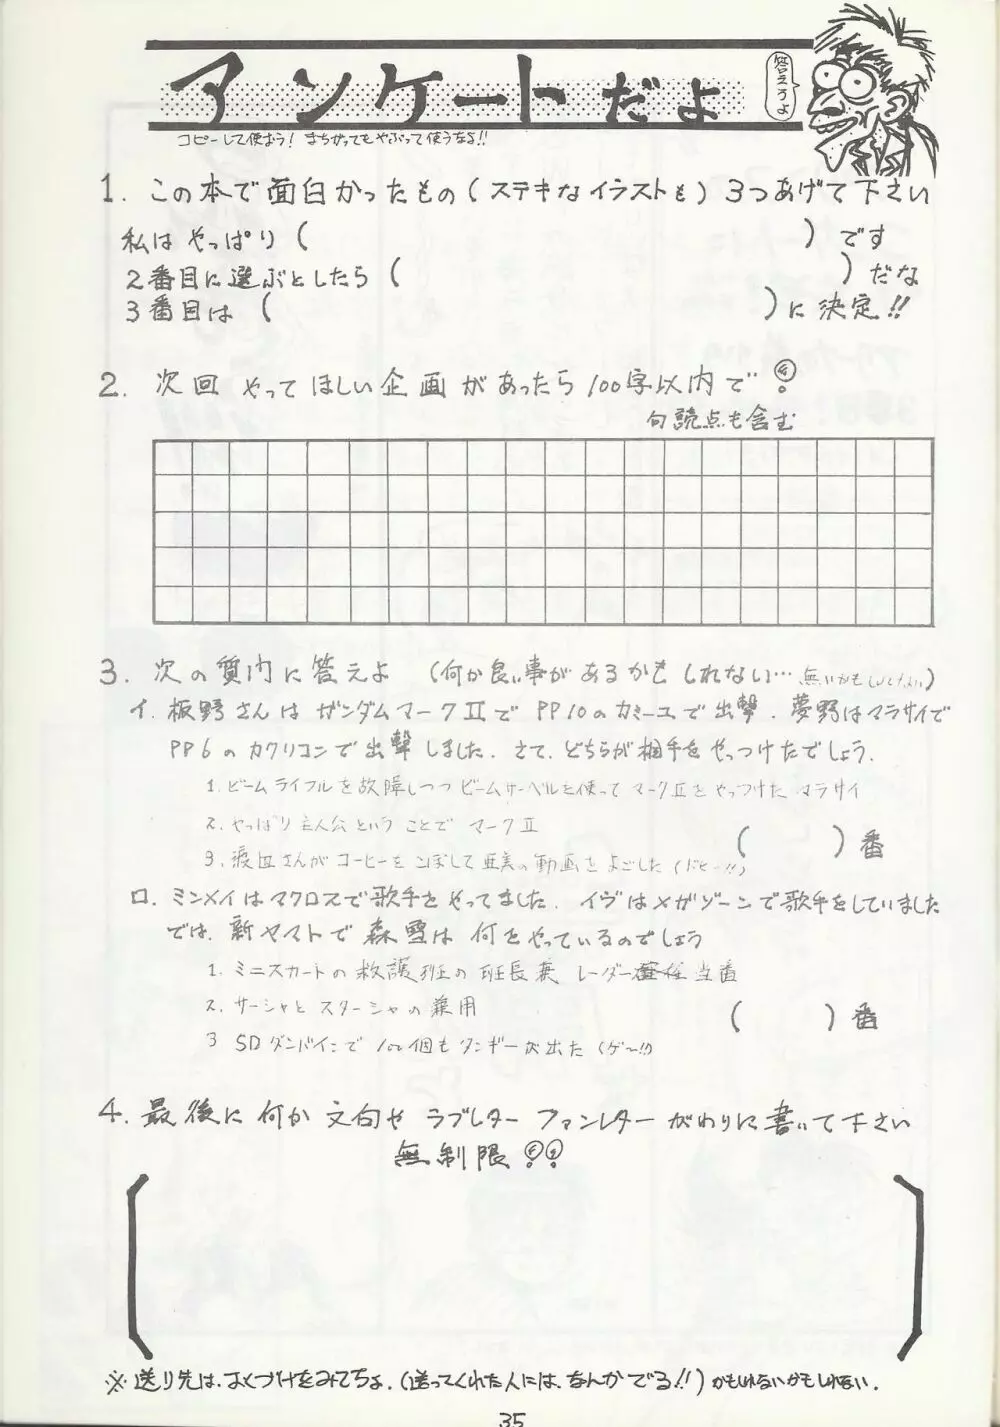 アンケートだよ
答えろよ
コピーして使おう！まちがってもやぶって使うなよ!!
1. この本で面白かったもの(ステキなイラストも)3つあげて下さい
私はやっぱり( )です
2番目に選ぶとしたら( )だな
3番目は( )に決定!!
2. 次回やってほしい企画があったら100字以内で!
句読点も含む
3. 次の質問に答えよ (何か良い事があるかもしれない…無いかもしれない)
イ. 板野さんはガンダムマークⅡでPP10のカミーユで出撃. 夢野はマラサイで
PP6のカクリコンで出撃しました. さて、どちらが相手をやっつけたでしょう.
1. ビームライフルを故障しつつビームサーベルを使ってマークⅡをやっつけたマラサイ
2. やっぱり主人公ということでマークⅡ
3. 渡辺さんがコーヒーをこぼして亜美の動画をよごした(ドヒー!!)
( )番
ロ. ミンメイはマクロスで歌手をやってました. イヴはメガゾーンで歌手をしていました
では、新ヤマトで森雪は何をやっているのでしょう
1. ミニスカートの救護班の班長兼レーダー担当番
2. サーシャとスターシャの兼用
3 SDダンバインで100個もダンギーが出た(ゲー!!)
( )番
4. 最後に何か文句やラブレターファンレターがわりに書いて下さい
無制限!!
※送り先は、おくづけをみてちょ.(送ってくれた人には、なんかでる!!)かもしれないかもしれない.
35